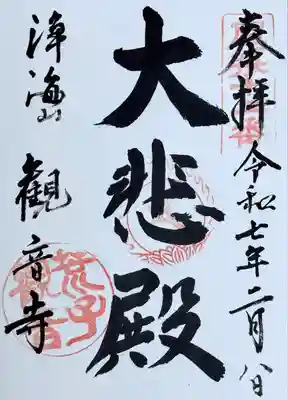 奉拝
令和七年二月八日
大悲殿
浄海山
観音寺
荒子観音